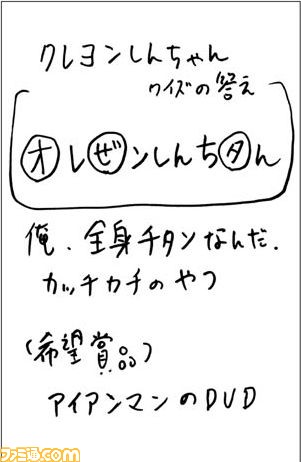 クレヨンしんちゃん
クイズの答え
オレゼンしんちタん
俺、全身チタンなんだ.
カッチカチのやつ
(希望賞品)
アイアンマンのDVD
ファミ通.com